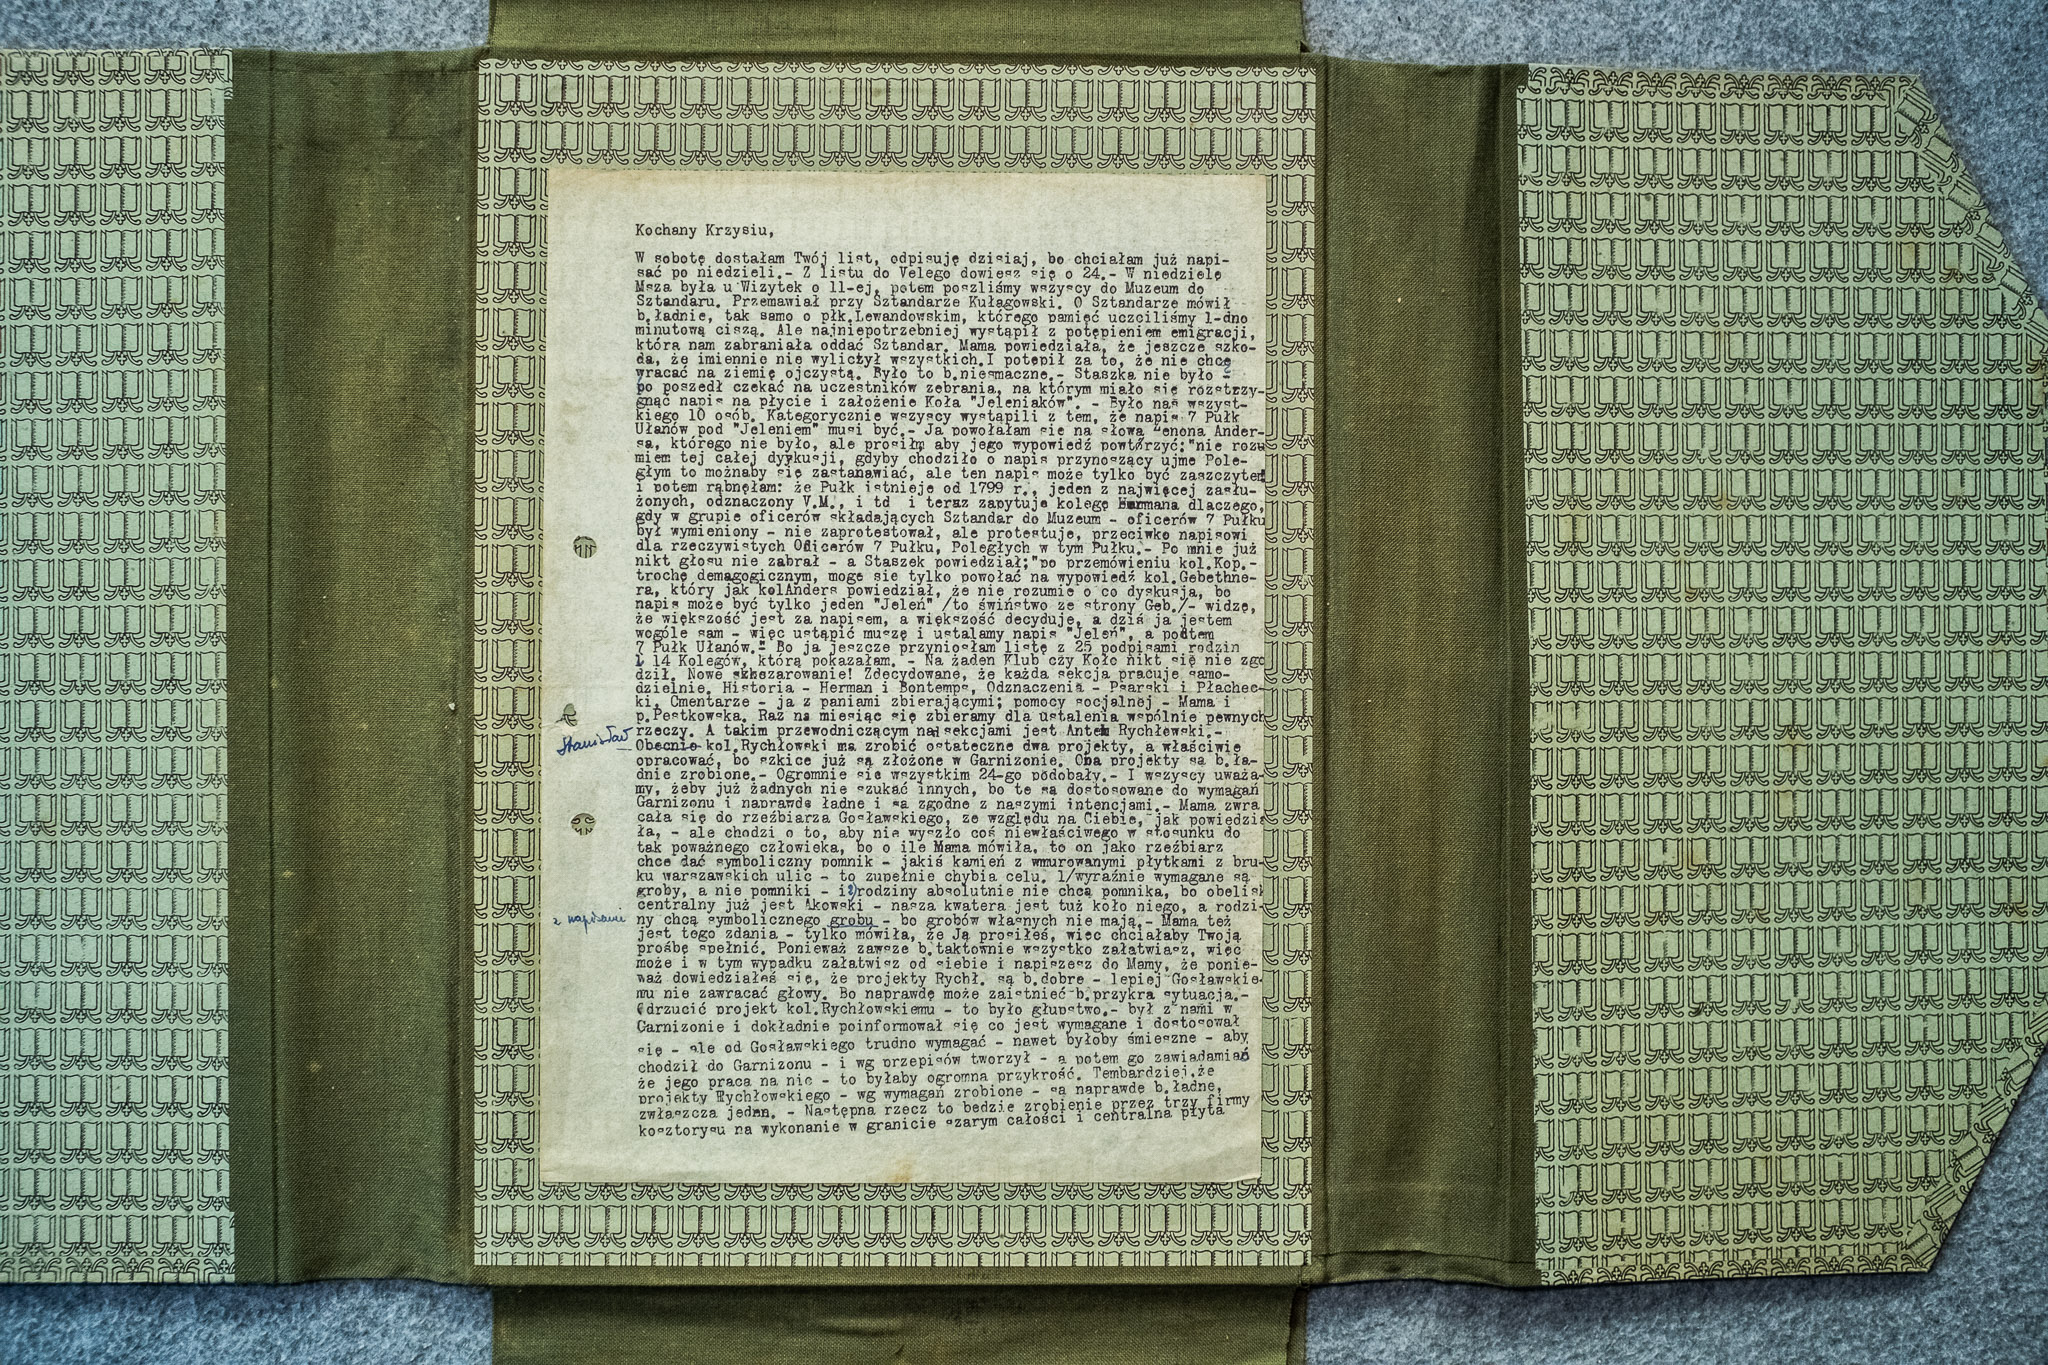 Kochany Krzysiu,
W sobotę dostałam Twój list, odpisuję dzisiaj, bo chciałam już napi-
sać po niedzieli.- Z listu do Velego dowiesz się o 24.- W niedzielę
Msza była u Wizytek o 11-ej, potem poszliśmy wszyscy do Muzeum do
Sztandaru. Przemawiał przy Sztandarze Kułagowski. O Sztandarze mówił
b.ładnie, tak samo o płk.Lewandowskim, którego pamięć uczciliśmy 1-dno
minutową ciszą. Ale najniepotrzebniej wystąpił z potępieniem emigracji,
która nam zabraniała oddać Sztandar. Mama powiedziała, że jeszcze szko-
da, że imiennie nie wyliczył wszystkich.I potępił za to, że nie chcę
wracać na ziemię ojczystą. Było to b.niesmaczne.- Staszka nie było -
po poszedł czekać na uczestników zebrania, na którym miało się rozstrzy-
gnąć napis na płycie i założenie Koła "Jeleniaków". - Było nas wszyst-
kiego 10 osób. Kategorycznie wszyscy wystąpili z tem, że napis 7 Pułk
Ułanów pod "Jeleniem" musi być.- Ja powołałam się na słowa Zenona Ander-
sa, którego nie było, ale prosiłm aby jego wypowiedź powtórzyć:"nie rozu
miem tej całej dyskusji, gdyby chodziło o napis przynoszący ujmę Pole-
głym to możnaby się zastanawiać, ale ten napis może tylko być zaszczytem
i potem rąbnęłam: że Pułk istnieje od 1799 r., jeden z najwięcej zasłu-
żonych, odznaczony V.M., i td i teraz zapytuję kolegę Hermana dlaczego,
gdy w grupie oficerów składających Sztandar do Muzeum - oficerów 7 Pułku
był wymieniony - nie zaprotestował, ale protestuje, przeciwko napisowi
dla rzeczywistych Oficerów 7 Pułku, Poległych w tym Pułku.- Po mnie już
nikt głosu nie zabrał - a Staszek powiedział;"po przemówieniu kol.Kop.-
trochę demagogicznym, mogę się tylko powołać na wypowiedź kol.Gebethne-
ra, który jak kolAnders powiedział, że nie rozumie o co dyskusja, bo
napis może być tylko jeden "Jeleń" /to świństwo ze strony Geb./- widzę,
że większość jest za napisem, a większość decyduje, a dziś ja jestem
wogóle sam - więc ustąpić muszę i ustalamy napis "Jeleń", a potem
7 Pułk Ułanów.- Bo ja jeszcze przyniosłam listę z 25 podpisami rodzin
i 14 Kolegów, którą pokazałam. - Na żaden Klub czy Koło nikt się nie zgo
dził. Nowe Zdecydowane, że każda sekcja pracuje samo-
dzielnie. Historia - Herman i Bontemps, Odznaczenia - Psarski i Płachec-
ki, Cmentarze - ja z paniami zbierającymi; pomocy socjalnej - Mama i
p.Pestkowska. Raz na miesiąc się zbieramy dla ustalenia wspólnie pewnych
rzeczy. A takim przewodniczącym nad sekcjami jest Antek Rychłewski.-
Stanisław
Obecnie kol.Rychłowski ma zrobić ostateczne dwa projekty, a właściwie
opracować, bo szkice już są złożone w Garnizonie. Oba projekty są b.ła-
dnie zrobione.- Ogromnie się wszystkim 24-go podobały.- I wszyscy uważa-
my, żeby już żadnych nie szukać innych, bo te są dostosowane do wymagań
Garnizonu i naprawdę ładne i są zgodne z naszymi intencjami.- Mama zwra
cała się do rzeźbiarza Gosławskiego, ze względu na Ciebie, jak powiedzia
ła, - ale chodzi o to, aby nie wyszło coś niewłaściwego w stosunku do
tak poważnego człowieka, bo o ile Mama mówiła, to on jako rzeźbiarz
chce dać symboliczny pomnik - jakiś kamień z wmurowanymi płytkami z bru-
ku warszawskich ulic - to zupełnie chybia celu. 1/wyraźnie wymagane są
groby, a nie pomniki - i 2)rodziny absolutnie nie chcą pomnika, bo obelisk
centralny już jest Akowski - nasza kwatera jest tuż koło niego, a rodzi-
z napisami
ny chcą symbolicznego grobu - bo grobów własnych nie mają.- Mama też
jest tego zdania - tylko mówiła, że Ją prosiłeś, więc chciałaby Twoją
prośbę spełnić. Ponieważ zawsze b.taktownie wszystko załatwiasz, więc
może i w tym wypadku załatwisz od siebie i napiszesz do Mamy, że ponie-
waż dowiedziałeś się, że projekty Rychł. są b.dobre - lepiej Gosławskie-
mu nie zawracać głowy. Bo naprawdę może zaistnieć b.przykra sytuacja.-
Odrzucić projekt kol.Rychłowskiemu - to było głupstwo.- był z nami w
Garnizonie i dokładnie poinformował się co jest wymagane i dostosował
się - ale od Gosławskiego trudno wymagać - nawet byłoby śmieszne - aby
chodził do Garnizonu - i wg przepisów tworzył - a potem go zawiadamiać
że jego praca na nic - to byłaby ogromna przykrość. Tembardziej,że
projekty Rychłowskiego - wg wymagań zrobione - są naprawdę b.ładne,
zwłaszcza jeden. - Następna rzecz to będzie zrobienie przez trzy firmy
kosztorysu na wykonanie w granicie szarym całości i centralna płyta